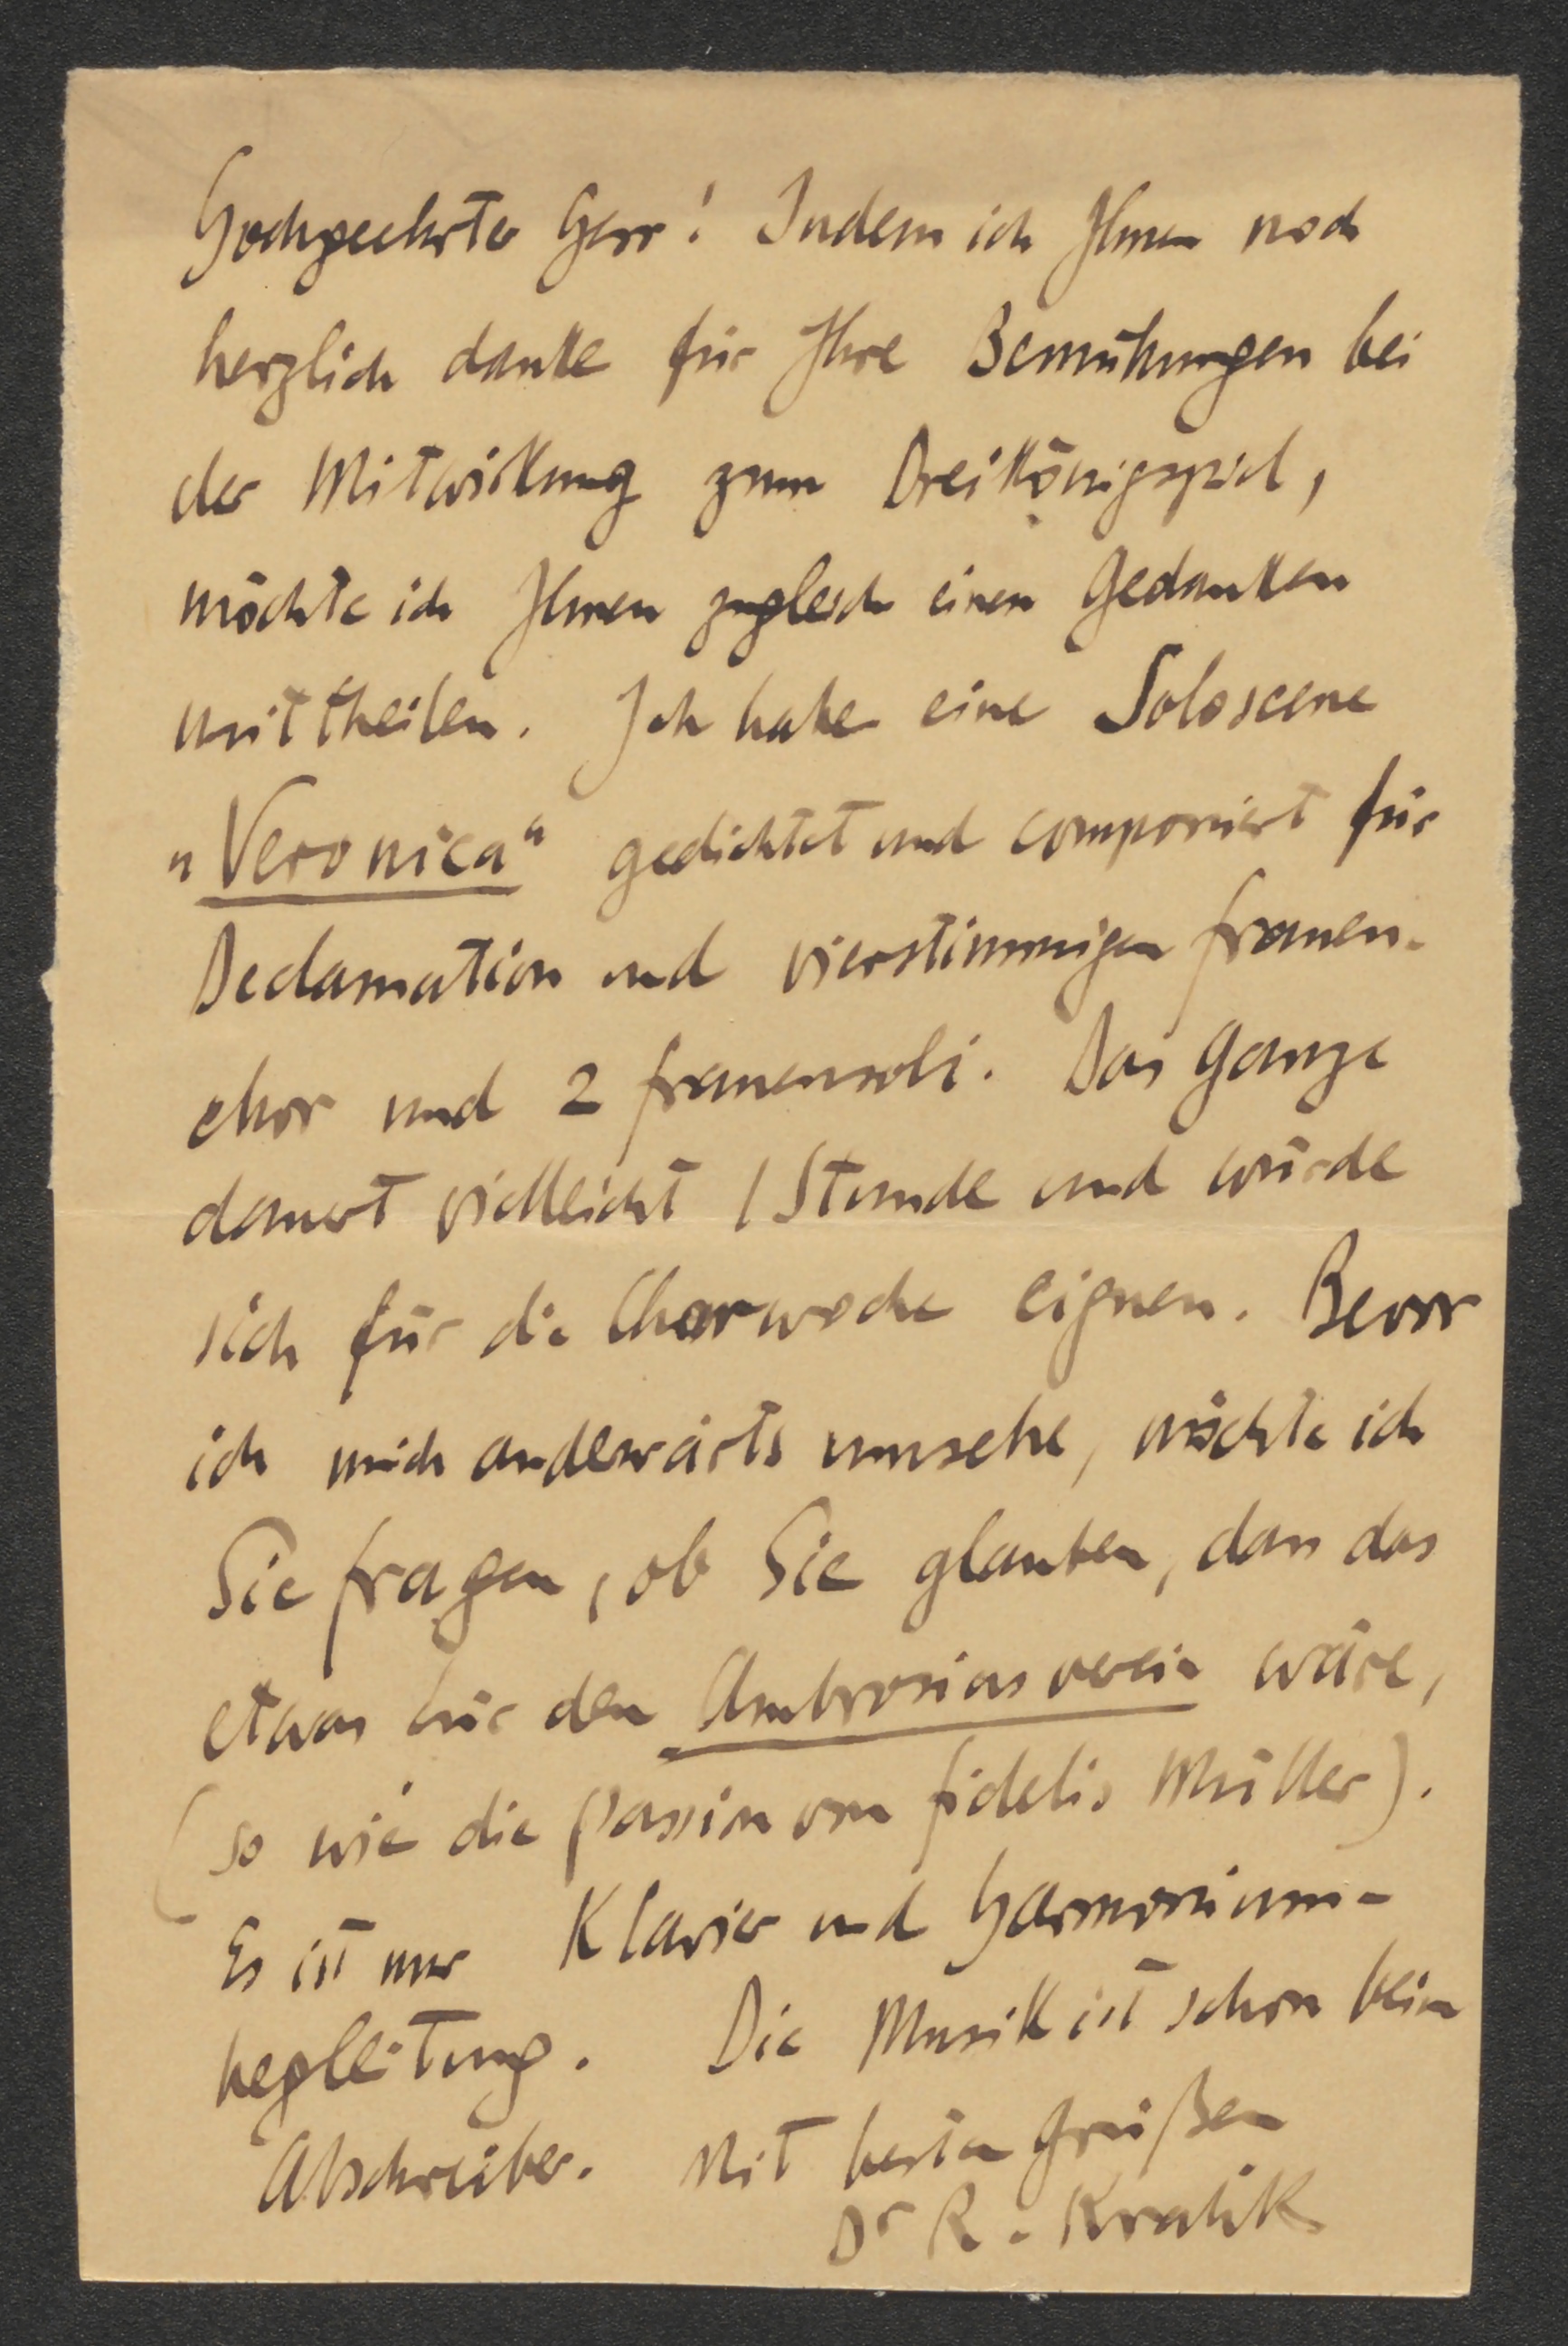 Hochgeehrter Herr! Indem ich Ihnen noch
herzlich danke für Ihre Bemühungen bei
der Mitwirkung zum Dreikönigsspiel,
möchte ich Ihnen zugleich einen Gedanken
mittheilen. Ich habe eine Soloscene
„Veronica“ gedichtet und componiert für
Declamation und vierstimmigen Frauen-
chor und 2 Frauensoli. Das Ganze
dauert vielleicht 1 Stunde und würde
sich für die Charwoche eignen. Bevor
ich mich anderwärts umsehe, möchte ich
Sie fragen, ob Sie glauben, dass das
etwas für den Ambrosiusverein wäre,
(so wie die Passion von Fidelis Müller).
Es ist nur Klavier und Harmonium-
begleitung. Die Musik ist schon beim
Abschreiber. Mit besten Grüßen
Dr R. Kralik